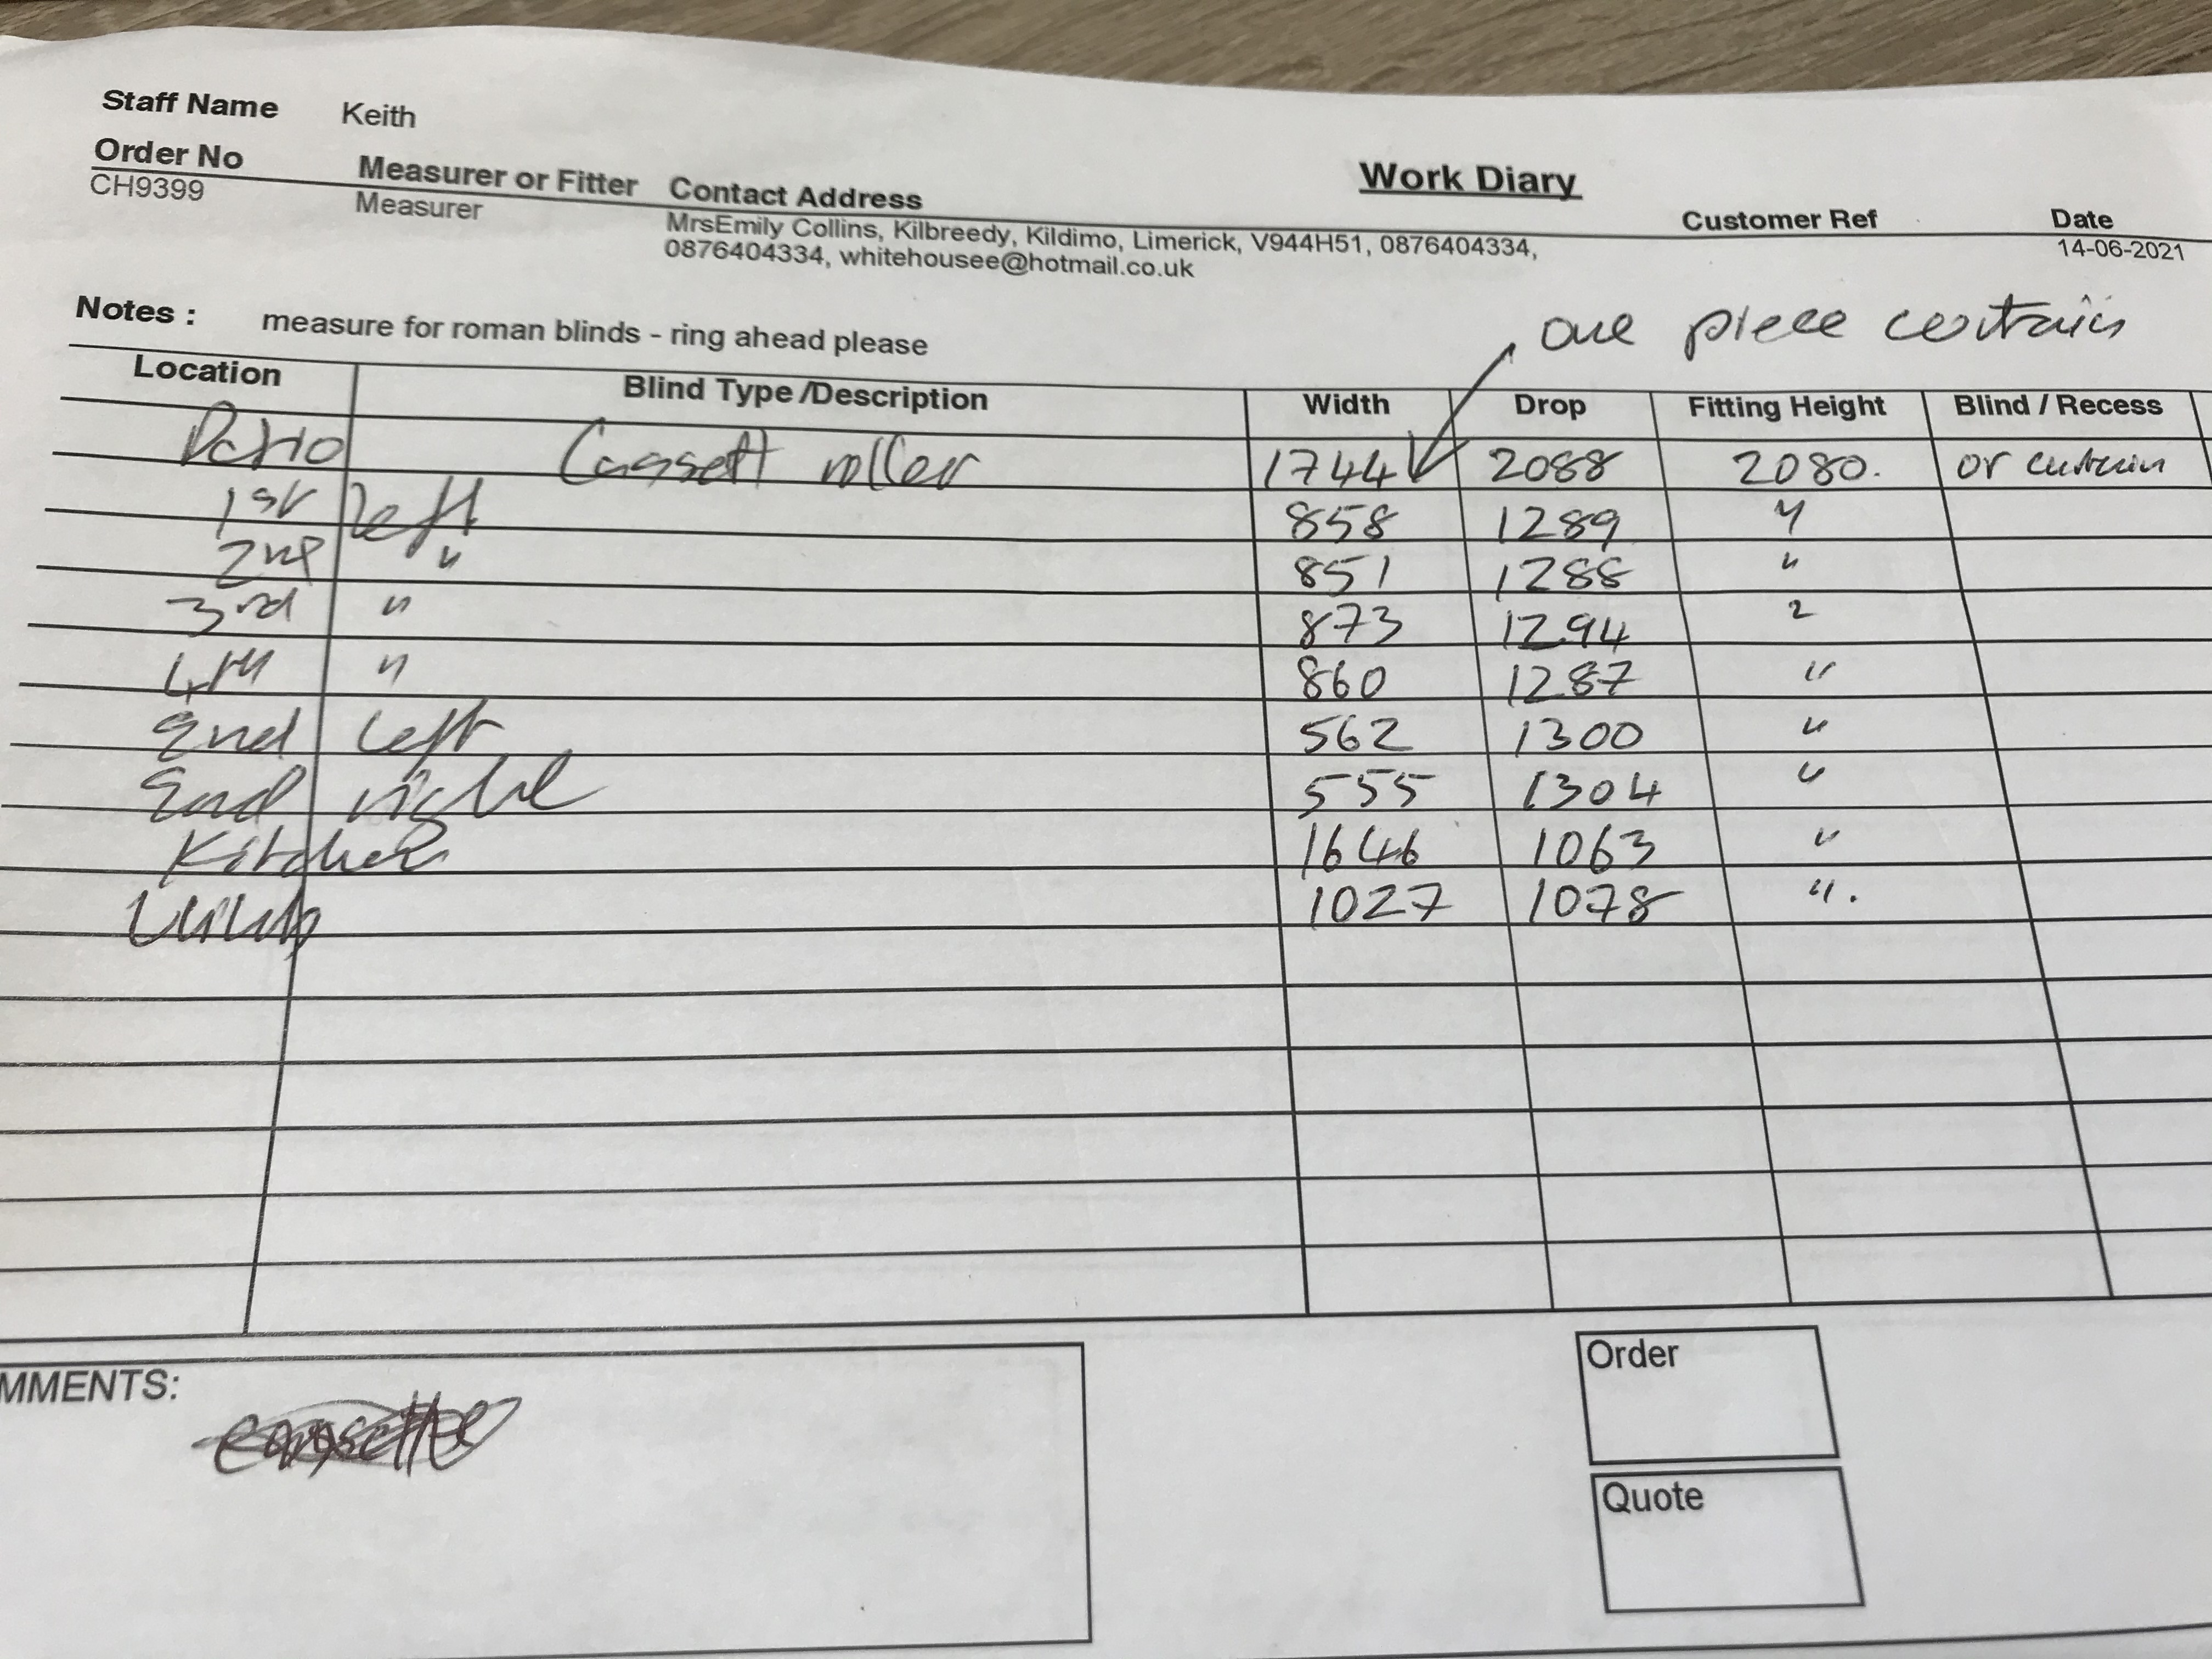 Work Diary
Staff Name Keith
Order No Measurer or Fitter Contact Address Customer Ref Date
CH9399 Measurer MrsEmily Collins, Kilbreedy, Kildimo, Limerick, V944H51, 0876404334, 14-06-2021
0876404334, whitehousee@hotmail.co.uk
Notes : measure for roman blinds - ring ahead please
one piece certains
Location Blind Type /Description Width Drop Fitting Height Blind / Recess
Patio Cassett roller 1744 2088 2080. or curtain
1st left 858 1289 "
2nd " 851 1288 "
3rd " 873 1294 "
4th " 860 1287 "
End left 562 1300 "
End right 555 1304 "
Kitchen 1646 1063 "
Utility 1027 1078 ".
MMENTS:
Order
Quote